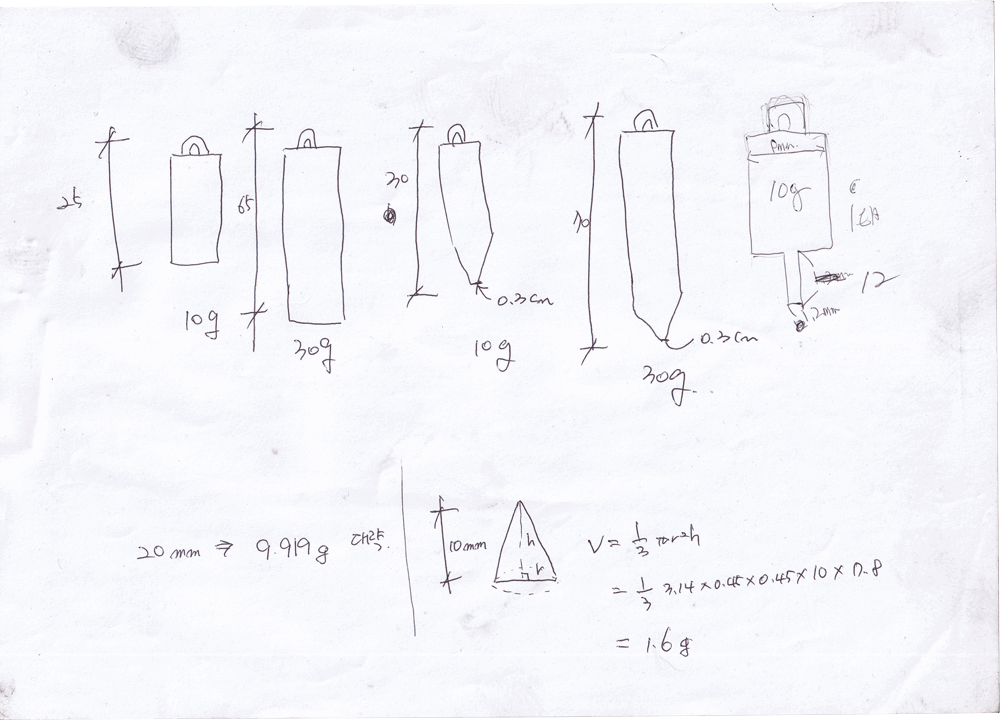 25
10g
65
30g
30
0.3cm
10g
70
0.3cm
30g..
9mm.
10g
12
2mm
20mm ⇒ 9.919g 대략.
10mm
h
r
V = 1/3 πr²h
= 1/3 3.14 × 0.45 × 0.45 × 10 × 7.8
= 1.6g